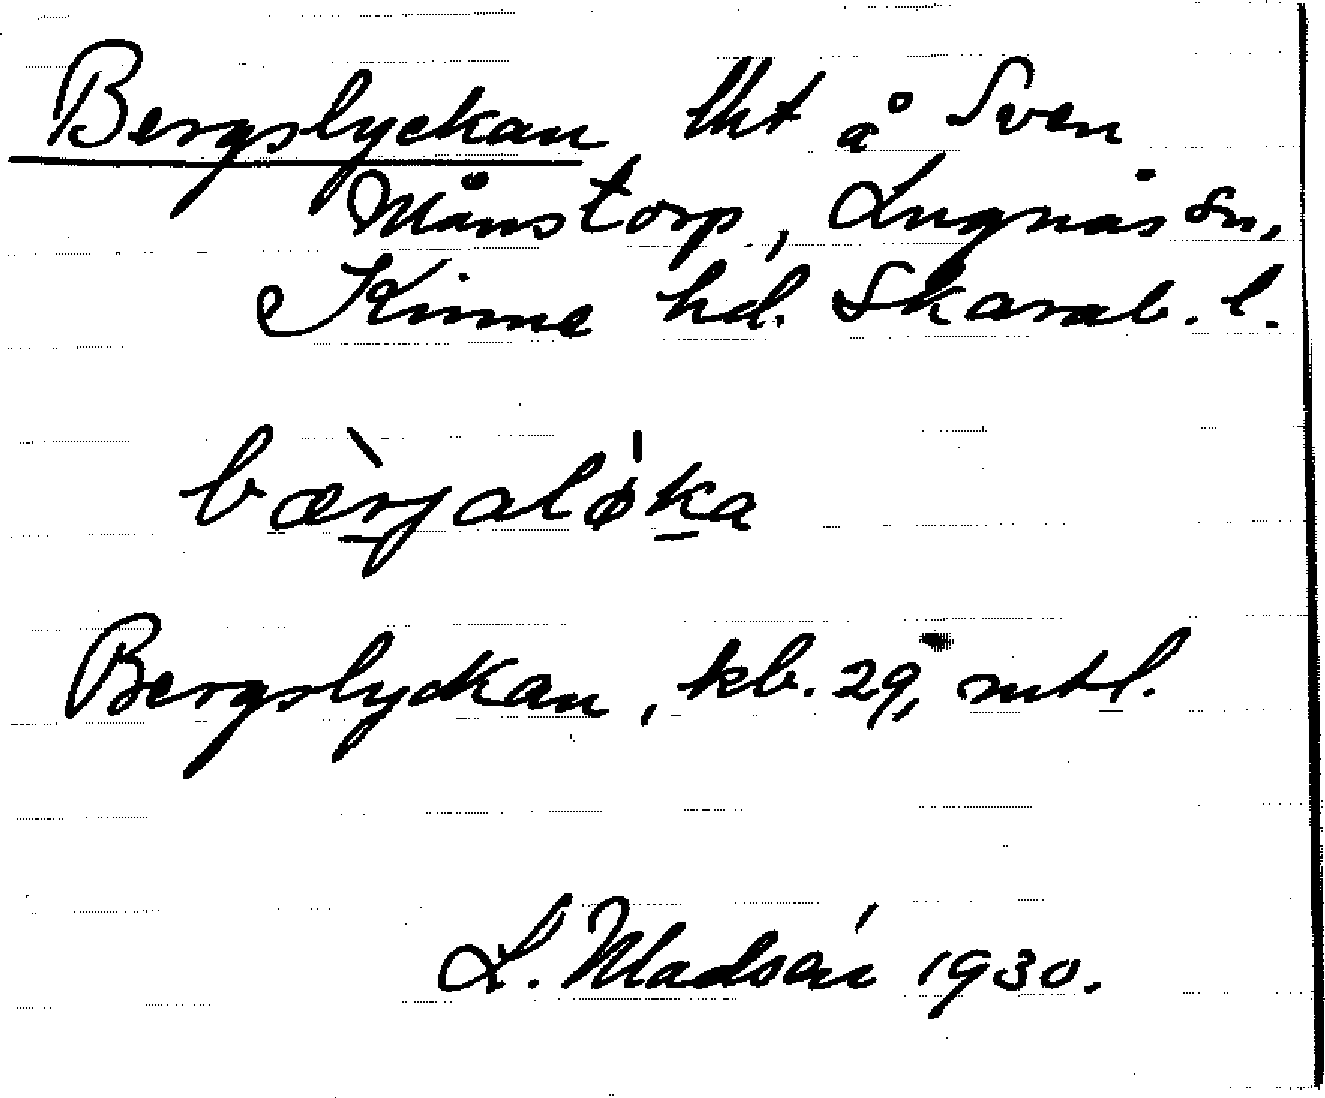 Bergslyckan lht å Sven
Månstorp, Lugnås sn,
Kinne hd. Skarab. l.
bæ̀rjalø̍ka
Bergslyckan, kb. 29, mtl.
L. Madsén 1930.